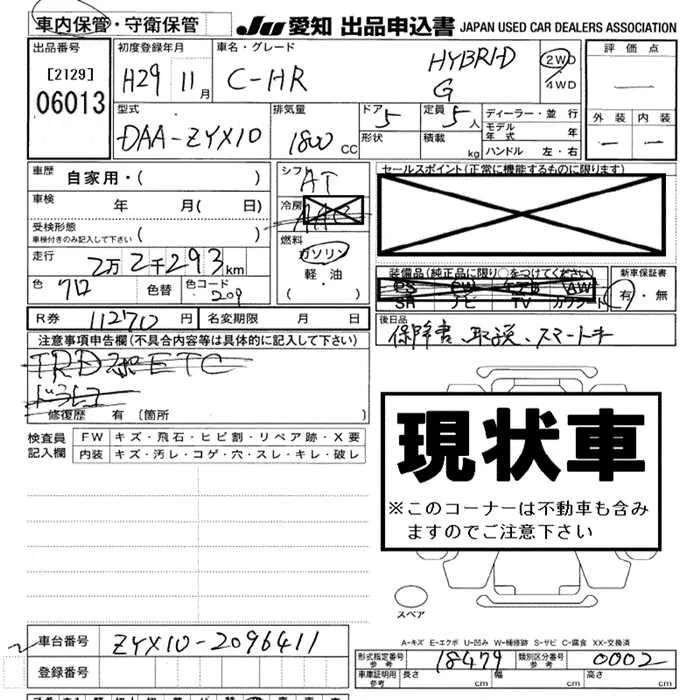 車内保管・守衛保管 JU 愛知 出品申込書 JAPAN USED CAR DEALERS ASSOCIATION
出品番号 初度登録年月 車名・グレード 評価点
[2129] H29 11月 C-HR HYBRID G 2WD 4WD
06013
型式 排気量 ドア 定員 ディーラー・並行 外装 内装
DAA-ZYX10 1800CC 5 5人 モデル年式 年
形状 積載 kg ハンドル 左・右
車歴 自家用・( ) シフト AT セールスポイント(正常に機能するものに限ります)
車検 年 月( 日) 冷房 AAC
受検形態
車検付きのみ記入して下さい 燃料 ガソリン
走行 2万2千293km 軽・油 装備品(純正品に限り○をつけてください) 新車保証書
色 クロ 色替 色コード 209 ( ) PS PW エアB AW 有・無
SR ナビ TV カワシート
R券 11271ワ 円 名変期限 月 日 後日品
保障書、取説、スマートキ
注意事項申告欄(不具合内容等は具体的に記入して下さい)
TRD ETC
ドラレコ
修復歴 有 [箇所 ]
検査員記入欄 FW キズ・飛石・ヒビ割・リペア跡・X要
内装 キズ・汚レ・コゲ・穴・スレ・キレ・破レ
現状車
※このコーナーは不動車も含み
ますのでご注意下さい
スペア
A-キズ E-エクボ U-凹み W-補修跡 S-サビ C-腐食 XX-交換済
車台番号 ZYX10-2096411 形式指定番号 参考 18479 類別区分番号 参考 0002
登録番号 車庫証明用 参考 長さ 幅 高さ